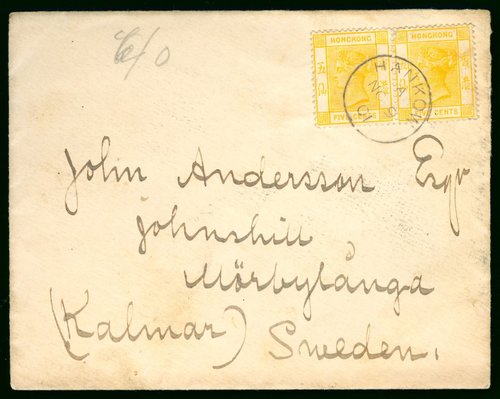 6/0
HONGKONG HONGKONG
FIVE CENTS
HANKOW
A
NO 9
01
John Andersson Esqr
Johnshill
Mörbylånga
(Kalmar) Sweden.